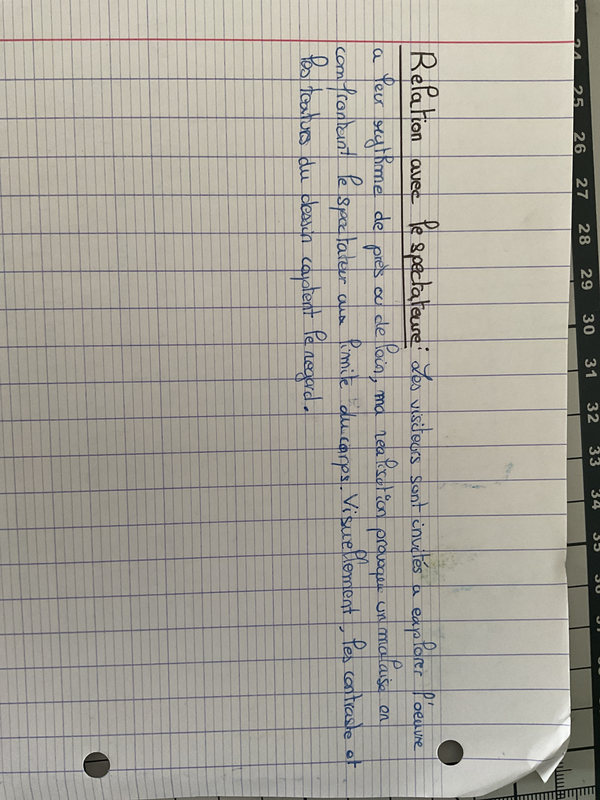 Relation avec le spectateure : Les visiteurs sont invités a explorer l'oeuvre
a leur rythme de près ou de loin, ma realisation provoque un malaise en
confrontant le spectateur aux limite du corps. Visuellement, les contraste et
les textures du dessin captent le regard.
24
25
26
27
28
29
30
31
32
33
34
35
36